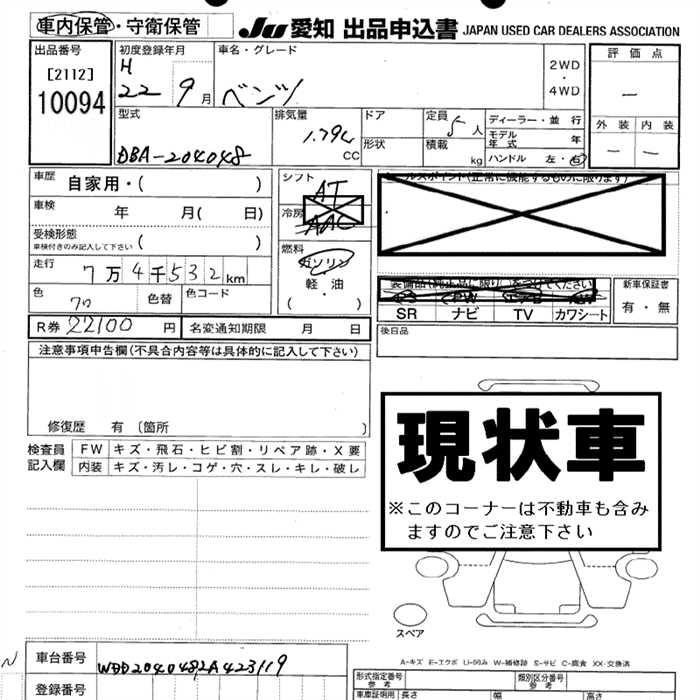 車内保管・守衛保管
JU 愛知 出品申込書 JAPAN USED CAR DEALERS ASSOCIATION
出品番号
[2112]
10094
初度登録年月
H
22 9月
車名・グレード
ベンツ
2WD
・
4WD
評価点
—
外装 内装
— —
型式
DBA-204048
排気量
CC
ドア
形状
定員
5人
積載
kg
ディーラー・並行
モデル年式 年
ハンドル 左・右
車歴 自家用・( )
車検 年 月( 日)
受検形態
車検付きのみ記入して下さい ( )
走行 7万4千532km
色 色替 色コード
R券 22100円 名変通知期限 月 日
シフト
AT
冷房
燃料
ガソリン
軽・油
( ・ )
セールスポイント(正常に機能するものに限ります)
装備品(純正品に限り○をつけてください)
PS PW
SR ナビ TV カワシート
新車保証書
有・無
後日品
注意事項申告欄(不具合内容等は具体的に記入して下さい)
修復歴 有〔箇所 〕
検査員記入欄
FW キズ・飛石・ヒビ割・リペア跡・X要
内装 キズ・汚レ・コゲ・穴・スレ・キレ・破レ
現状車
※このコーナーは不動車も含み
ますのでご注意下さい
スペア
A-キズ E-エクボ U-凹み W-補修跡 S-サビ C-腐食 XX-交換済
N
車台番号 WDD2040482A423119
登録番号
形式指定番号
参考
類別区分番号
参考
車庫証明用 長さ 幅 高さ